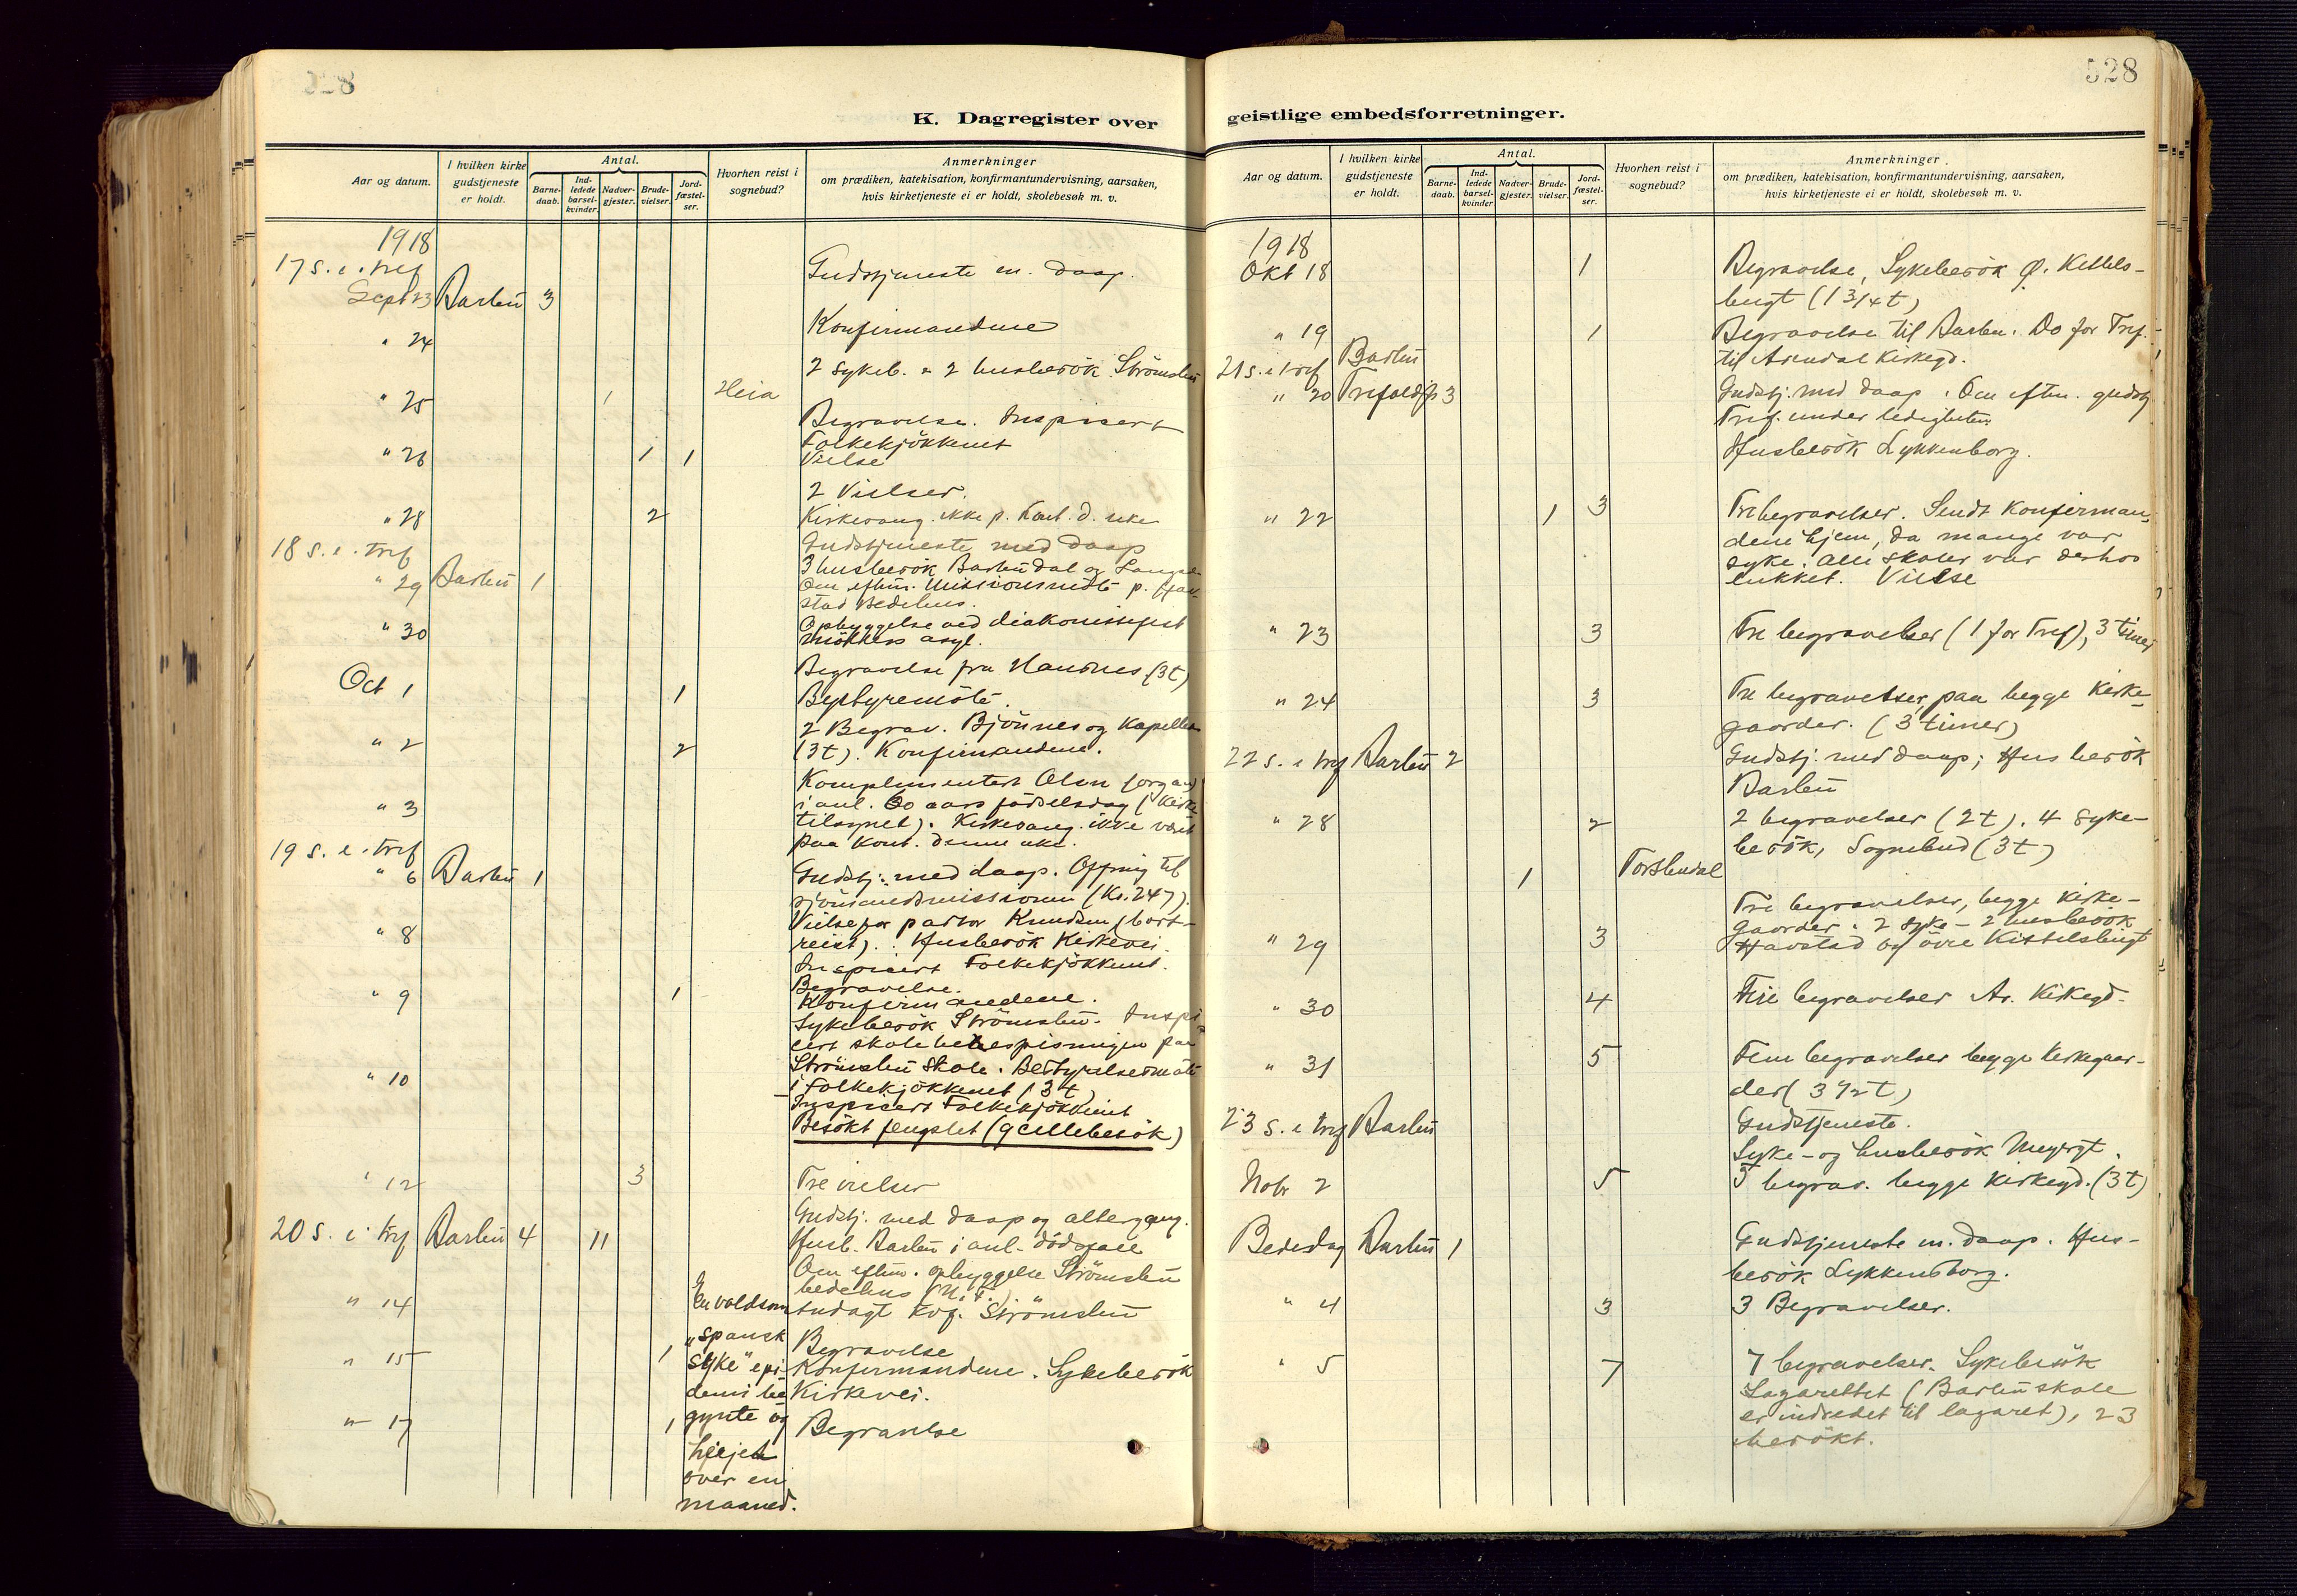 528
K. Dagregister over
Aar og datum.
I hvilken kirke
gudstjeneste
er holdt.
Antal.
Barne-
daab.
Ind-
ledede
barsel-
kvinder.
Nadver-
gjester.
Brude-
vielser.
Jord-
fæstel-
ser.
Hvorhen reist i
sognebud?
Anmerkninger
om prædiken, katekisation, konfirmantundervisning, aarsaken,
hvis kirketjeneste ei er holdt, skolebesøk m. v.
1918
17 s. e. tref
Sept 23 Barbu 3 Gudstjeneste m. daap.
" 24 Konfirmandene
2 sykeb. 2 husbesök Strömsbu
" 25 1 Heia
Begravelse. Inspisert
Folkekjökkenet
" 26 1 1 Vielse
2 Vielser.
" 28 2 Kirkesang. ikke p. Kont. d. uke
18 s. e. tref Gudstjeneste med daap
" 29 Barbu 1 3 husbesök Barbudal og
Om eftm. Missionsmöte p. Hav-
stad Bedehus.
" 30 Opbyggelse ved diakonissefest
asyl.
Begravelse fra (3t)
Oct 1 1
2 Begrav. Bjönnes og Kapellet
" 2 2 (3t). Konfirmandene.
Komplimentert Olsen (organ)
" 3 i anl. 60 aars födselsdag (Kirke
Kirkesang. ikke været
19 s. e. tref paa Kont. denne uke.
" 6 Barbu 1 Gudstj. med daap. Offring til
sjömandsmissionen (Kr. 247).
Vielse for pastor Knudsen (bort-
" 8 reist). Husbesök Kirkevei.
Inspisert Folkekjökkenet.
Begravelse.
" 9 1 Konfirmandene.
Sykebesök Strömsbu. Inspi-
sert skolebebespisningen paa
Strömsbu Skole. Bestyrelsesmöte
" 10 i Folkekjökkenet (3t)
Inspisert Folkekjökkenet
Besökt fengslet (9 cellebesök)
" 12 3 Tre vielser
20 s. e. tref Barbu 4 11 Gudstj. med daap og altergang.
Husb. Barbu i anl. dödsfall
Om eftm. opbyggelse Strömsbu
bedehus
" 14 Andagt Kvf. Strömsbu
En voldsom
"spansk
syke" epi-
demi be-
gynte og
herjet
over en
maaned.
" 15 1 Begravelse
Konfirmandene. Sykebesök
Kirkevei.
" 17 1 Begravelse
528
geistlige embedsforretninger.
Aar og datum.
I hvilken kirke
gudstjeneste
er holdt.
Antal.
Barne-
daab.
Ind-
ledede
barsel-
kvinder
Nadver-
gjester.
Brude-
vielser.
Jord-
fæstel-
ser.
Hvorhen reist i
sognebud?
Anmerkninger.
om prædiken, katekisation, konfirmantundervisning, aarsaken,
hvis kirketjeneste ei er holdt, skolebesøk m. v.
1918
Okt 18 1 Begravelse, Sykebesök Ø. Kittels-
bugt (1 3/4 t)
" 19 1 Begravelse til Barbu. Do for Tref.
til Arendal Kirkegd.
21 s. e. tref Barbu
" 20 Trefoldigh 3 Gudstj. med daap. Om eftm. gudstj
Tref. under ledigheten.
Husbesök Lykkenborg.
" 22 1 3 Tre begravelser. Sendt konfirman-
dene hjem, da mange var
syke. Alle skoler var derhos
lukket. Vielse
" 23 3 Tre begravelser (1 for Tref), 3 timer
" 24 3 Tre begravelser, paa begge Kirke-
gaarder. (3 timer)
22 s. e. tref Barbu 2 Gudstj. med daap; Husbesök
Barbu
" 28 2 2 begravelser (2t). 4 syke-
besök, Sognebud (3t)
1 Torsbudal
Tre begravelser, begge Kirke-
gaarder. 2 syke- 2 husbesök
" 29 3 Havstad og övre Kittelsbugt
" 30 4 Fire begravelser Ar. Kirkegd.
" 31 5 Fem begravelser begge Kirkegaar-
der (3 1/2 t)
23 s. e. tref Barbu Gudstjeneste.
Syke- og husbesök
Nobr 2 5 5 begrav. begge Kirkegd. (3t)
Bededag Barbu 1 Gudstjeneste m. daap. Hus-
besök Lykkensborg.
" 4 3 3 Begravelser.
" 5 7 7 begravelser. Sykebesök
Lazarettet (Barbu skole
er indredet til lazaret), 23
besökt.